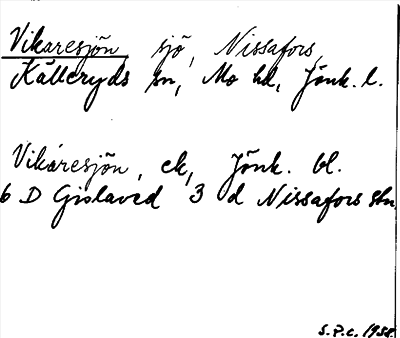 Vikaresjön sjö, Nissafors,
Källeryds sn, Mo hd, Jönk. l.
Vikaresjön, ek, Jönk. bl.
6 D Gislaved 3 d Nissafors stn
S.P.C. 1958.